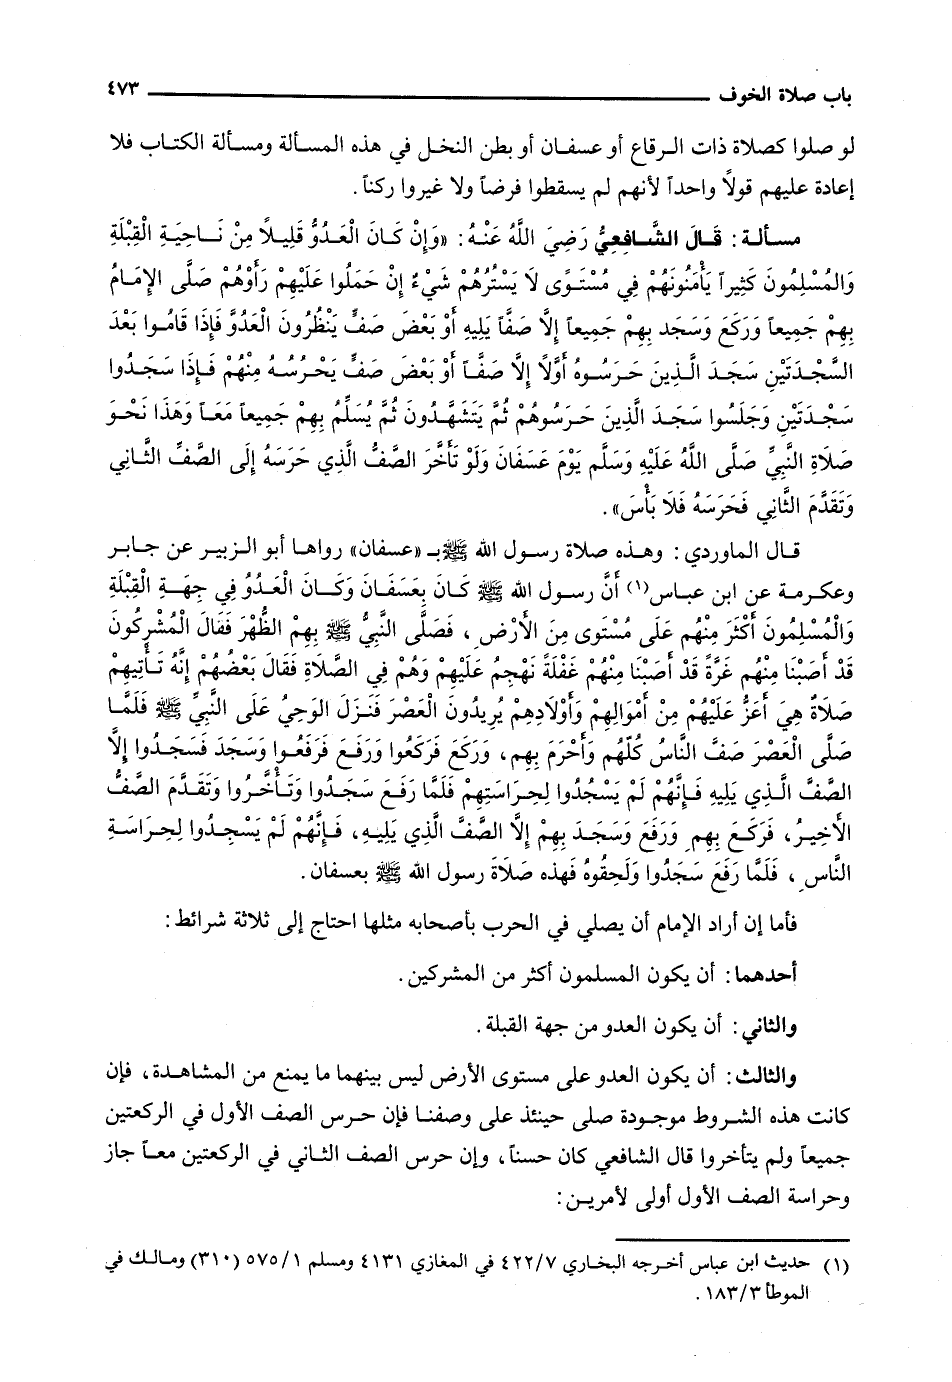 باب صلاة الخوف ــــــــــــــــــــــــــــــــــــــــــ ٤٧٣
لو صلوا كصلاة ذات الرقاع أو عسفان أو بطن النخل في هذه المسألة ومسألة الكتاب فلا
إعادة عليهم قولاً واحداً لأنهم لم يسقطوا فرضاً ولا غيروا ركناً .
مسألة : قَالَ الشَّافِعِيُّ رَضِيَ اللَّهُ عَنْهُ : «وَإِنْ كَانَ الْعَدُوُّ قَلِيلاً مِنْ نَاحِيَةِ الْقِبْلَةِ
وَالمُسْلِمُونَ كَثِيراً يَأْمَنُونَهُمْ فِي مُسْتَوًى لَا يَسْتُرُهُمْ شَيْءٌ إِنْ حَمَلُوا عَلَيْهِمْ رَأَوْهُمْ صَلَّى الإِمَامُ
بِهِمْ جَمِيعاً وَرَكَعَ وَسَجَدَ بِهِمْ جَمِيعاً إِلَّا صَفًّا يَلِيهِ أَوْ بَعْضَ صَفٍّ يَنْظُرُونَ الْعَدُوَّ فَإِذَا قَامُوا بَعْدَ
السَّجْدَتَيْنِ سَجَدَ الَّذِينَ حَرَسُوهُ أَوَّلاً إِلَّا صَفًّا أَوْ بَعْضَ صَفٍّ يَحْرُسُهُ مِنْهُمْ فَإِذَا سَجَدُوا
سَجْدَتَيْنِ وَجَلَسُوا سَجَدَ الَّذِينَ حَرَسُوهُمْ ثُمَّ يَتَشَهَّدُونَ ثُمَّ يُسَلِّمُ بِهِمْ جَمِيعاً مَعَاً وَهَذَا نَحْوَ
صَلَاةِ النَّبِيِّ صَلَّى اللَّهُ عَلَيْهِ وَسَلَّم يَوْمَ عَسَفَانَ وَلَوْ تَأَخَّرَ الصَّفُّ الَّذِي حَرَسَهُ إِلَى الصَّفِّ الثَّانِي
وَتَقَدَّمَ الثَّانِي فَحَرَسَهُ فَلَا بَأْسَ» .
قال الماوردي : وهذه صلاة رسول الله ﷺ بـ «عسفان» رواها أبو الزبير عن جابر
وعكرمة عن ابن عباس(١) أَنَّ رسول الله ﷺ كَانَ بِعَسَفَانَ وَكَانَ الْعَدُوُ فِي جِهَةِ الْقِبْلَةِ
وَالْمُسْلِمُونَ أَكْثَرَ مِنْهُم عَلَى مُسْتَوى مِنَ الأَرْضِ ، فَصَلَّى النَّبِيُّ ﷺ بِهِمْ الظُّهْرَ فَقَالَ الْمُشْرِكُونَ
قَدْ أَصَبْنَا مِنْهُم غَرَّةً قَدْ أَصَبْنَا مِنْهُمْ غَفْلَةً نَهْجِمُ عَلَيْهِمْ وَهُمْ فِي الصَّلَاةِ فَقَالَ بَعْضُهُمْ إِنَّهُ تَأْتِيهِمْ
صَلَاةٌ هِيَ أَعَزُّ عَلَيْهُمْ مِنْ أَمْوَالِهِمْ وَأَوْلَادِهِمْ يُرِيدُونَ الْعَصْرَ فَنَزَلَ الوَحِيُ عَلَى النَّبِيِّ ﷺ فَلَمَّا
صَلَّى الْعَصْرَ صَفَّ النَّاسُ كُلُّهُم وَأَحْرَمَ بِهِم ، وَرَكَعَ فَرَكَعُوا وَرَفَعَ فَرَفَعُوا وَسَجَدَ فَسَجَدُوا إِلَّا
الصَّفَّ الَّذِي يَلِيهِ فَإِنَّهُمْ لَمْ يَسْجُدُوا لِحِرَاسَتِهِمْ فَلَمَّا رَفَعَ سَجَدُوا وَتَأَخَّرُوا وَتَقَدَّمَ الصَّفُّ
الأَخِيرُ ، فَرَكَعَ بِهِمِ وَرَفَعَ وَسَجَدَ بِهِمْ إِلَّا الصَّفَّ الَّذِي يَلِيهِ ، فَإِنَّهُمْ لَمْ يَسْجِدُوا لِحِرَاسَةِ
النَّاسِ ، فَلَمَّا رَفَعَ سَجَدُوا وَلَحِقُوهُ فَهذه صَلَاةَ رسول الله ﷺ بعسفان .
فأما إن أراد الإمام أن يصلي في الحرب بأصحابه مثلها احتاج إلى ثلاثة شرائط :
أحدهما : أن يكون المسلمون أكثر من المشركين .
والثاني : أن يكون العدو من جهة القبلة .
والثالث : أن يكون العدو على مستوى الأرض ليس بينهما ما يمنع من المشاهدة ، فإن
كانت هذه الشروط موجودة صلى حينئذ على وصفنا فإن حرس الصف الأول في الركعتين
جميعاً ولم يتأخروا قال الشافعي كان حسناً ، وإن حرس الصف الثاني في الركعتين معاً جاز
وحراسة الصف الأول أولى لأمرين :
(١) حديث ابن عباس أخرجه البخاري ٤٢٢/٧ في المغازي ٤١٣١ ومسلم ٥٧٥/١ (٣١٠) ومالك في
الموطأ ١٨٣/٣ .